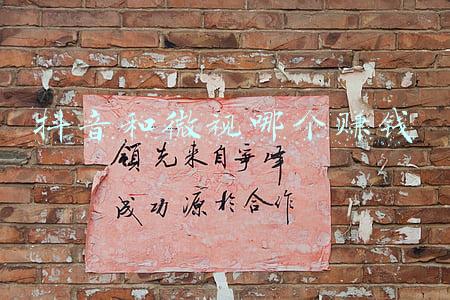 抖音和微视哪个赚钱
领先来自争峰
成功源於合作